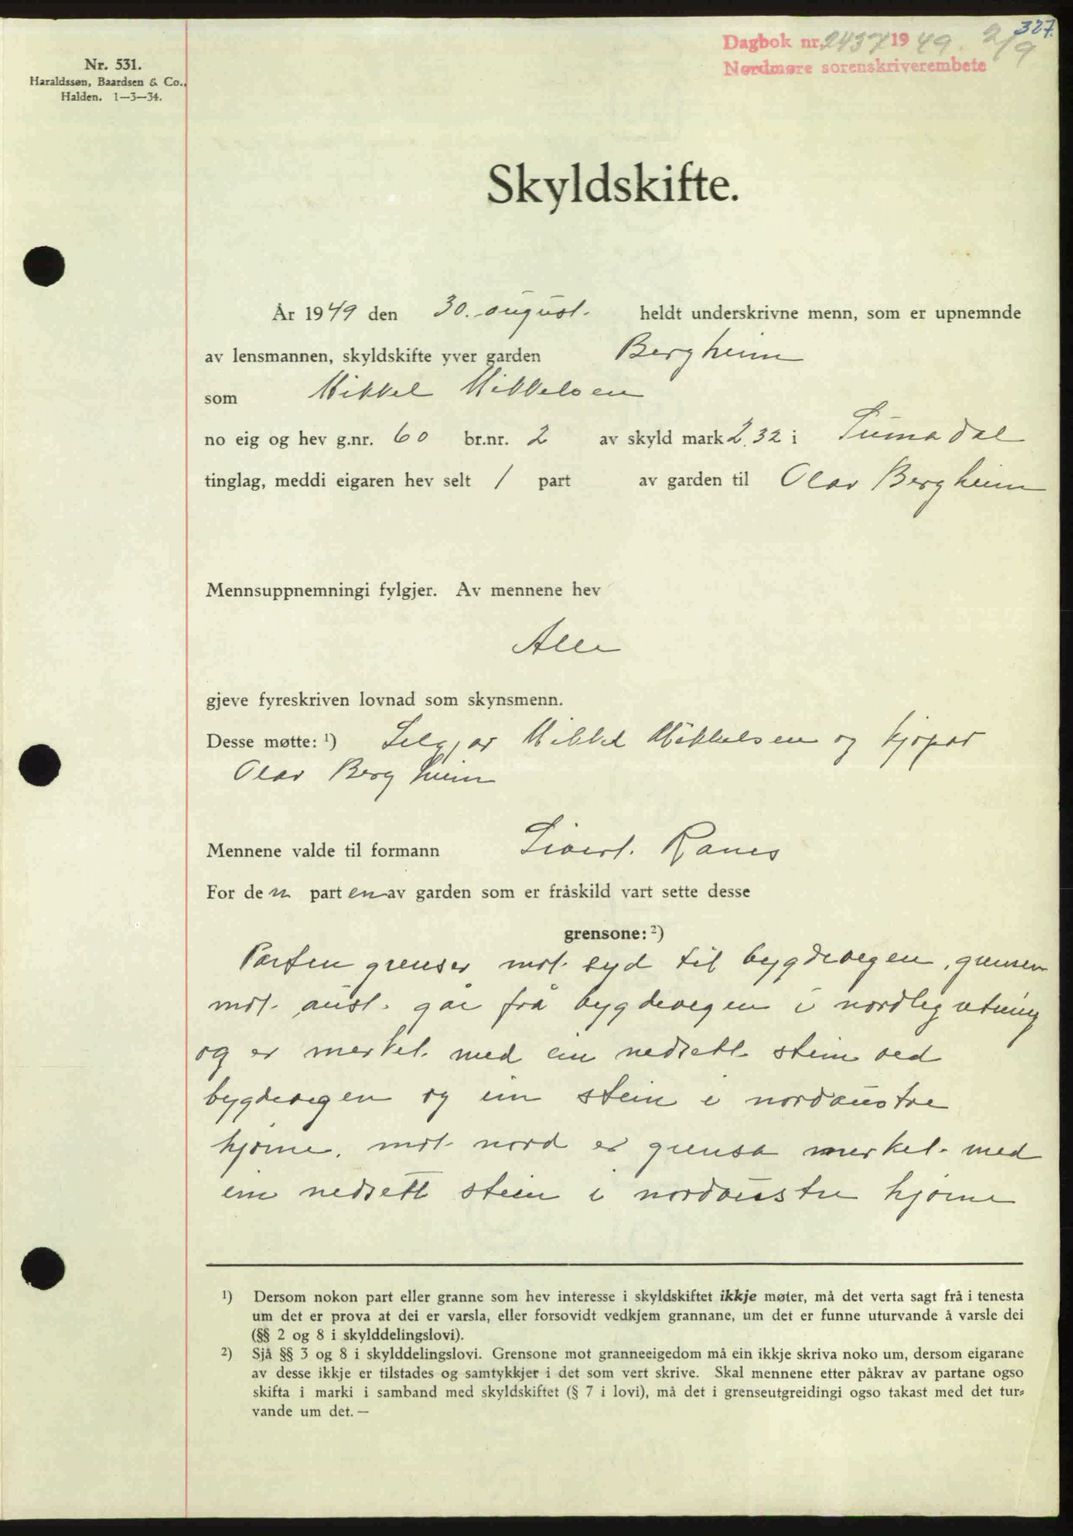 327.
Dagbok nr. 2437 1949. 2/9
Nordmøre sorenskriverembete
Nr. 531.
Haraldssøn, Baardsen & Co.,
Halden. 1—3—34.
Skyldskifte.
År 1949 den 30. august. heldt underskrivne menn, som er upnemnde
av lensmannen, skyldskifte yver garden Bergheim
som Mikkel Mikkelsen
no eig og hev g.nr. 60 br.nr. 2 av skyld mark 2.32 i Surnadal
tinglag, meddi eigaren hev selt 1 part av garden til Olav Bergheim
Mennsuppnemningi fylgjer. Av mennene hev
Alle
gjeve fyreskriven lovnad som skynsmenn.
Desse møtte: ¹) Seljar Mikkel Mikkelsen og kjøpar
Olav Bergheim
Mennene valde til formann Sivert. Ranes
For den parten av garden som er fråskild vart sette desse
grensone: ²)
Parten grenser mot syd til bygdevegen, grensen
mot aust. går frå bygdevegen i nordleg retning
og er merket med ein nedsett stein ved
bygdevegen og ein stein i nordaustre
hjørne. mot nord er grensa merket med
ein nedsett stein i nordaustre hjørne
¹) Dersom nokon part eller granne som hev interesse i skyldskiftet ikkje møter, må det verta sagt frå i tenesta
um det er prova at dei er varsla, eller forsovidt vedkjem grannane, um det er funne uturvande å varsle dei
(§§ 2 og 8 i skylddelingslovi).
²) Sjå §§ 3 og 8 i skylddelingslovi. Grensone mot granneeigedom må ein ikkje skriva noko um, dersom eigarane
av desse ikkje er tilstades og samtykkjer i det som vert skrive. Skal mennene etter påkrav av partane ogso
skifta i marki i samband med skyldskiftet (§ 7 i lovi), må det i grenseutgreidingi ogso takast med det tur-
vande um det. —